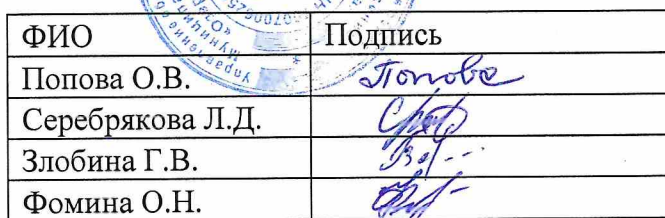 ФИО Подпись
Попова О.В. Попова
Серебрякова Л.Д.
Злобина Г.В.
Фомина О.Н.